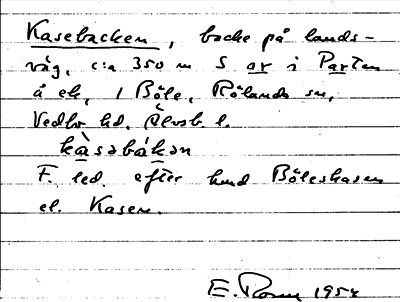 Kasebacken, backe på lands-
väg, c:a 350 m S or i Parten
å ek, 1 Böle, Rölanda sn,
Vedbo hd. Älvsb. l.
kàsabákən
F. led. efter hund Böleskasen
el. Kasen.
E. 1954